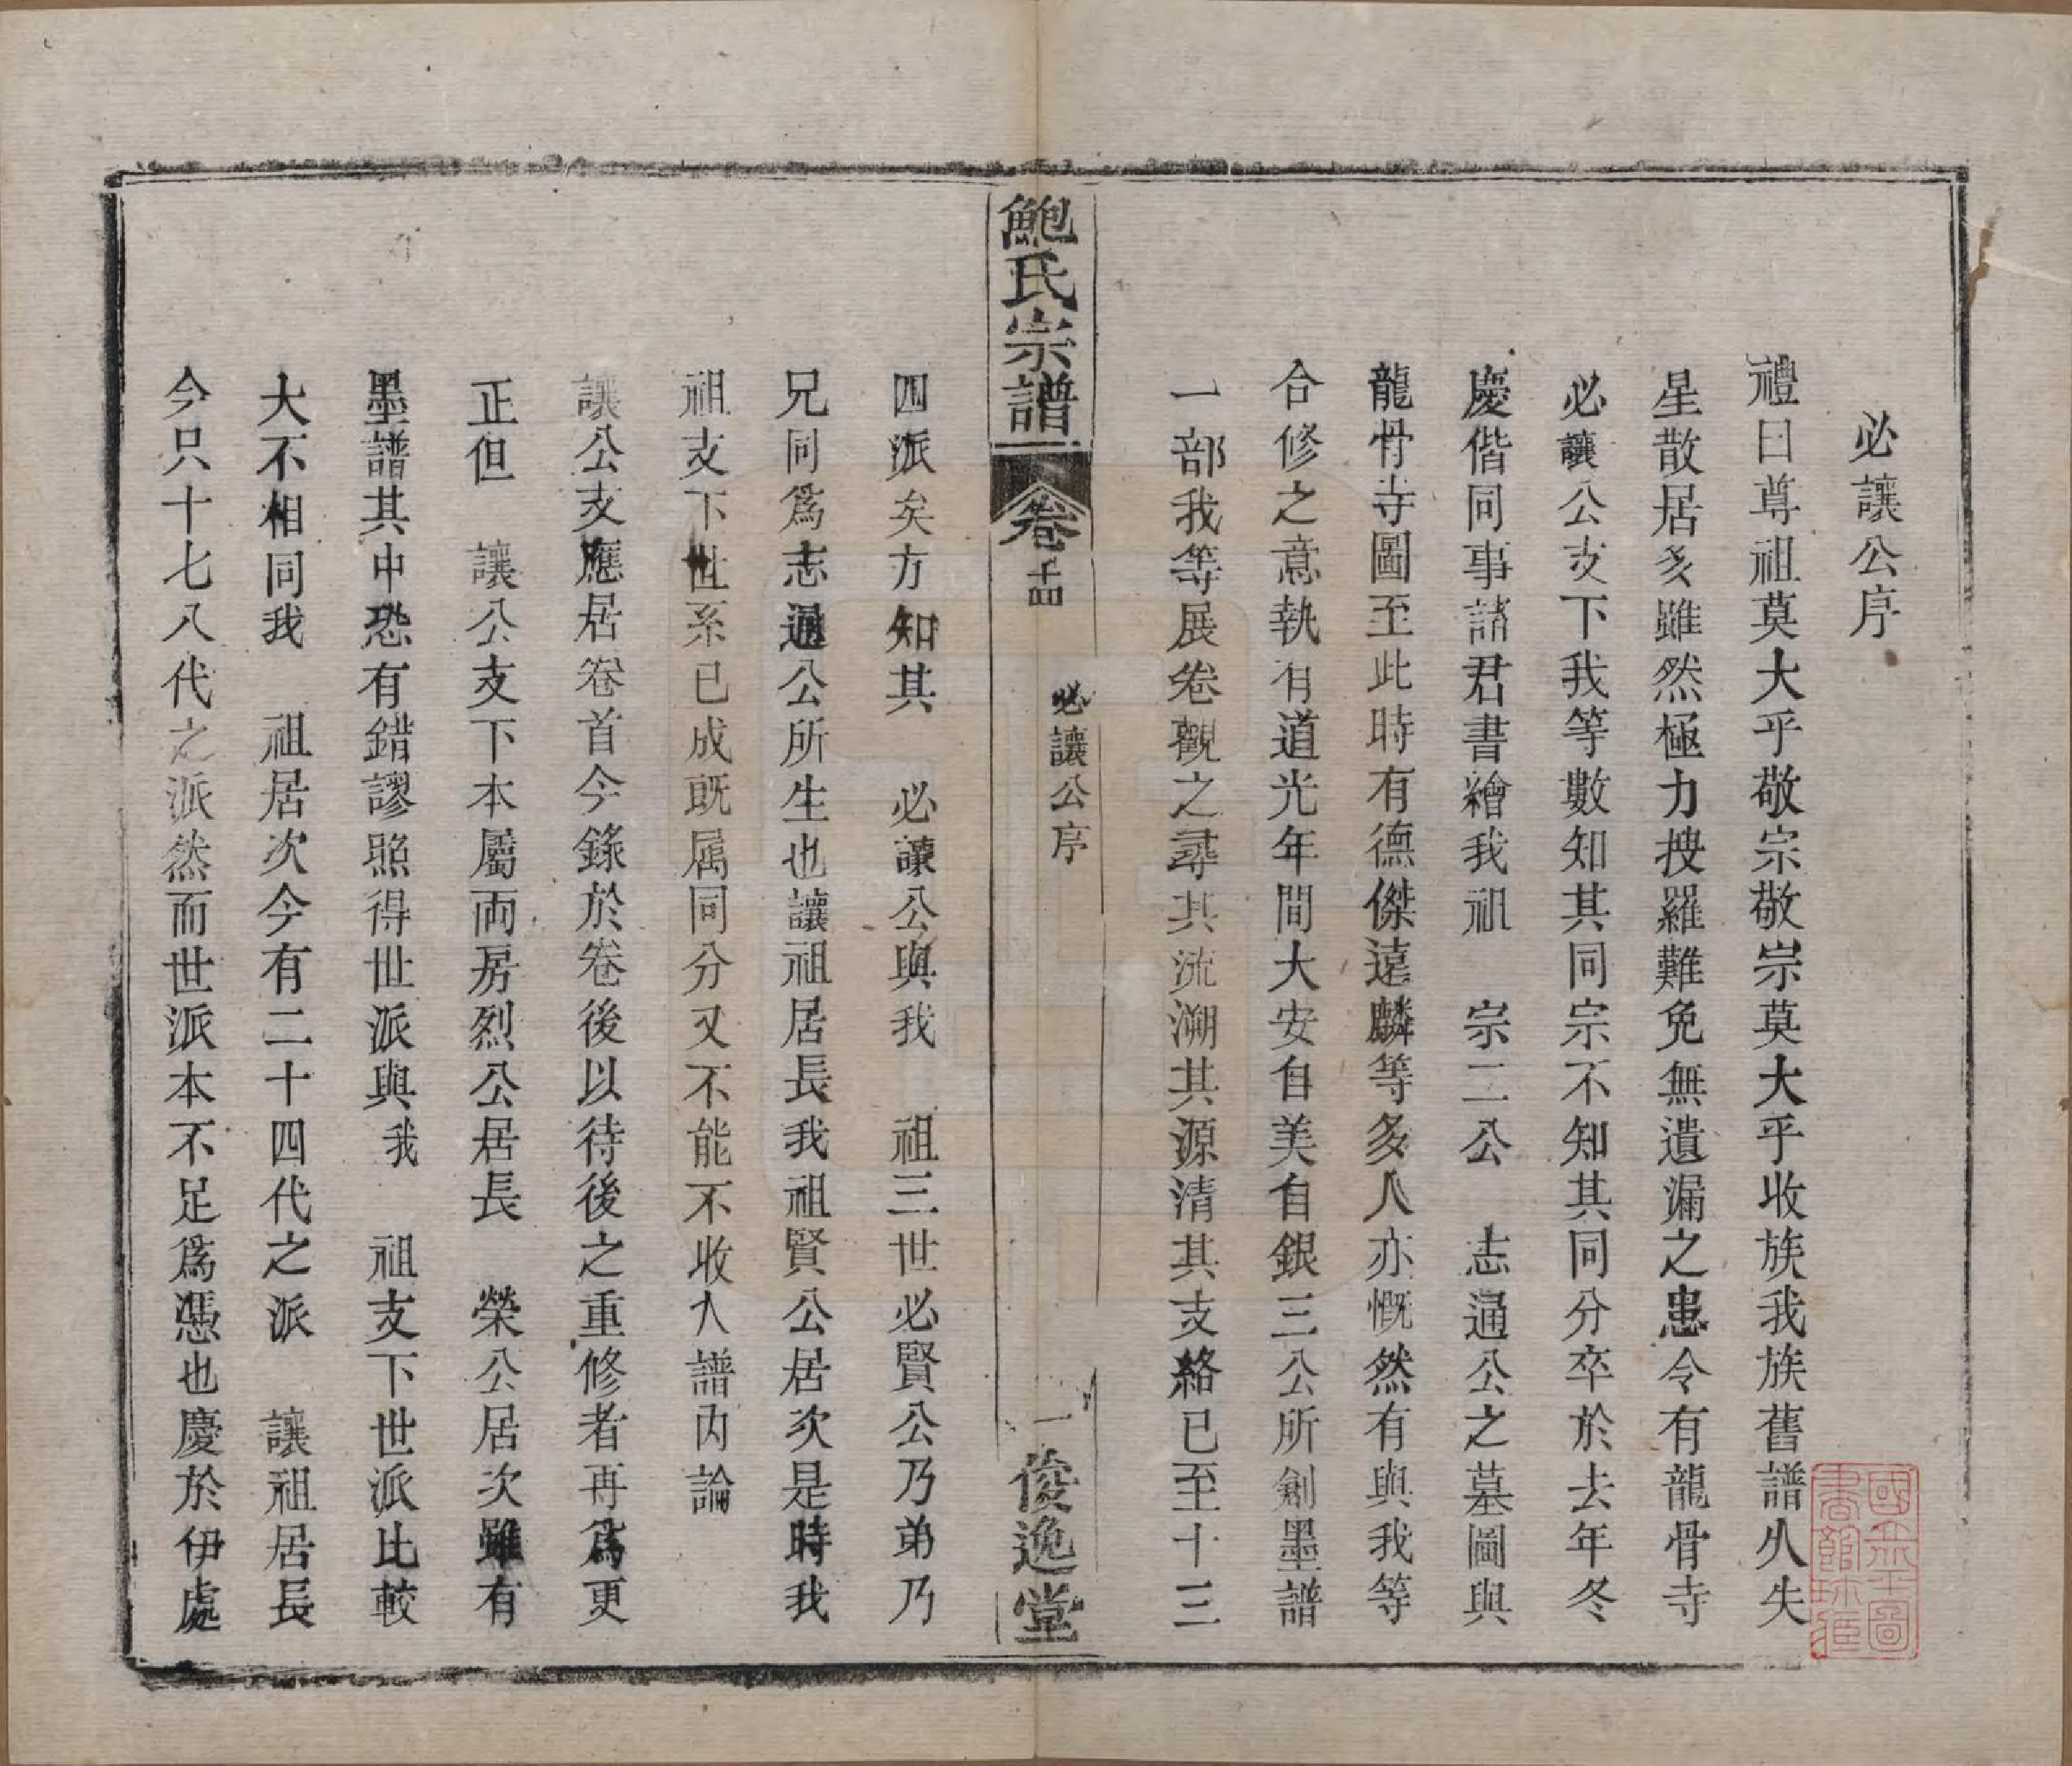 必讓公序
禮曰尊祖莫大乎敬宗敬宗莫大乎收族我族舊譜久失
星散居多雖然極力搜羅難免無遺漏之患令有龍骨寺
必讓公支下我等數知其同宗不知其同分卒於去年冬
慶偕同事諸君書繪我祖　宗二公　志通公之墓圖與
龍骨寺圖至此時有德傑遠麟等多人亦慨然有與我等
合修之意執有道光年間大安自美自銀三公所創墨譜
一部我等展卷觀之尋其流溯其源清其支絡已至十三
鮑氏宗譜　卷十四　必讓公序　一　俊逸堂
四派矣方知其　必讓公與我　祖三世必賢公乃弟乃
兄同爲志通公所生也讓祖居長我祖賢公居次是時我
祖支下世系已成既属同分又不能不收入譜内論
讓公支應居卷首今錄於卷後以待後之重修者再爲更
正但　讓公支下本屬両房烈公居長　榮公居次雖有
墨譜其中恐有錯謬照得世派與我　祖支下世派比較
大不相同我　祖居次今有二十四代之派　讓祖居長
今只十七八代之派然而世派本不足爲憑也慶於伊處
國立北平圖書館珍藏